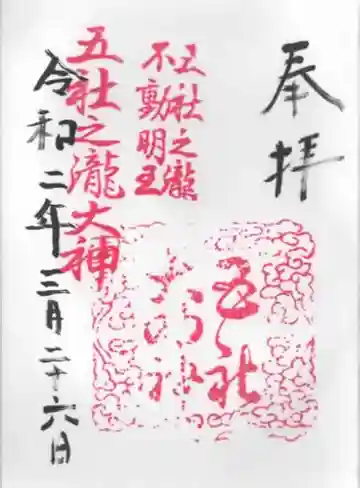 奉拝
五社之瀧
不動明王
五社之瀧大神
令和二年三月二十六日
五社